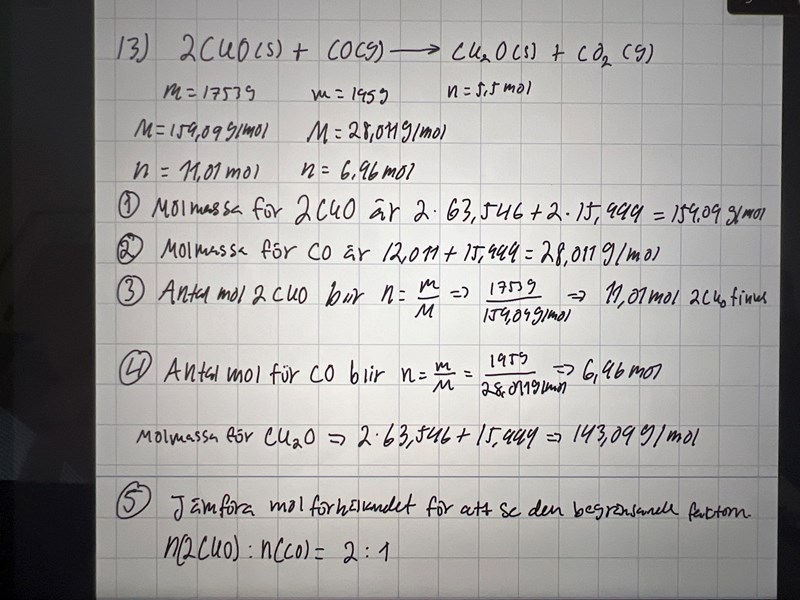 13) 2CuO(s) + CO(g) → Cu₂O(s) + CO₂ (g)
m=1753g m=195g n=5,5mol
M=159,09g/mol M=28,011g/mol
n = 11,01mol n= 6,96mol
① Molmassa för 2CuO är 2·63,546+2·15,999=159,09 g/mol
② Molmassa för CO är 12,011+15,999=28,011g/mol
③ Antal mol 2CuO blir n= m/M => 1753g/159,09g/mol => 11,01mol 2CuO finns
④ Antal mol för CO blir n= m/M = 195g/28,011g/mol => 6,96mol
Molmassa för Cu₂O => 2·63,546+15,999 => 143,09g/mol
⑤ Jämföra molförhållandet för att se den begränsande faktorn.
n(2CuO):n(CO)= 2:1